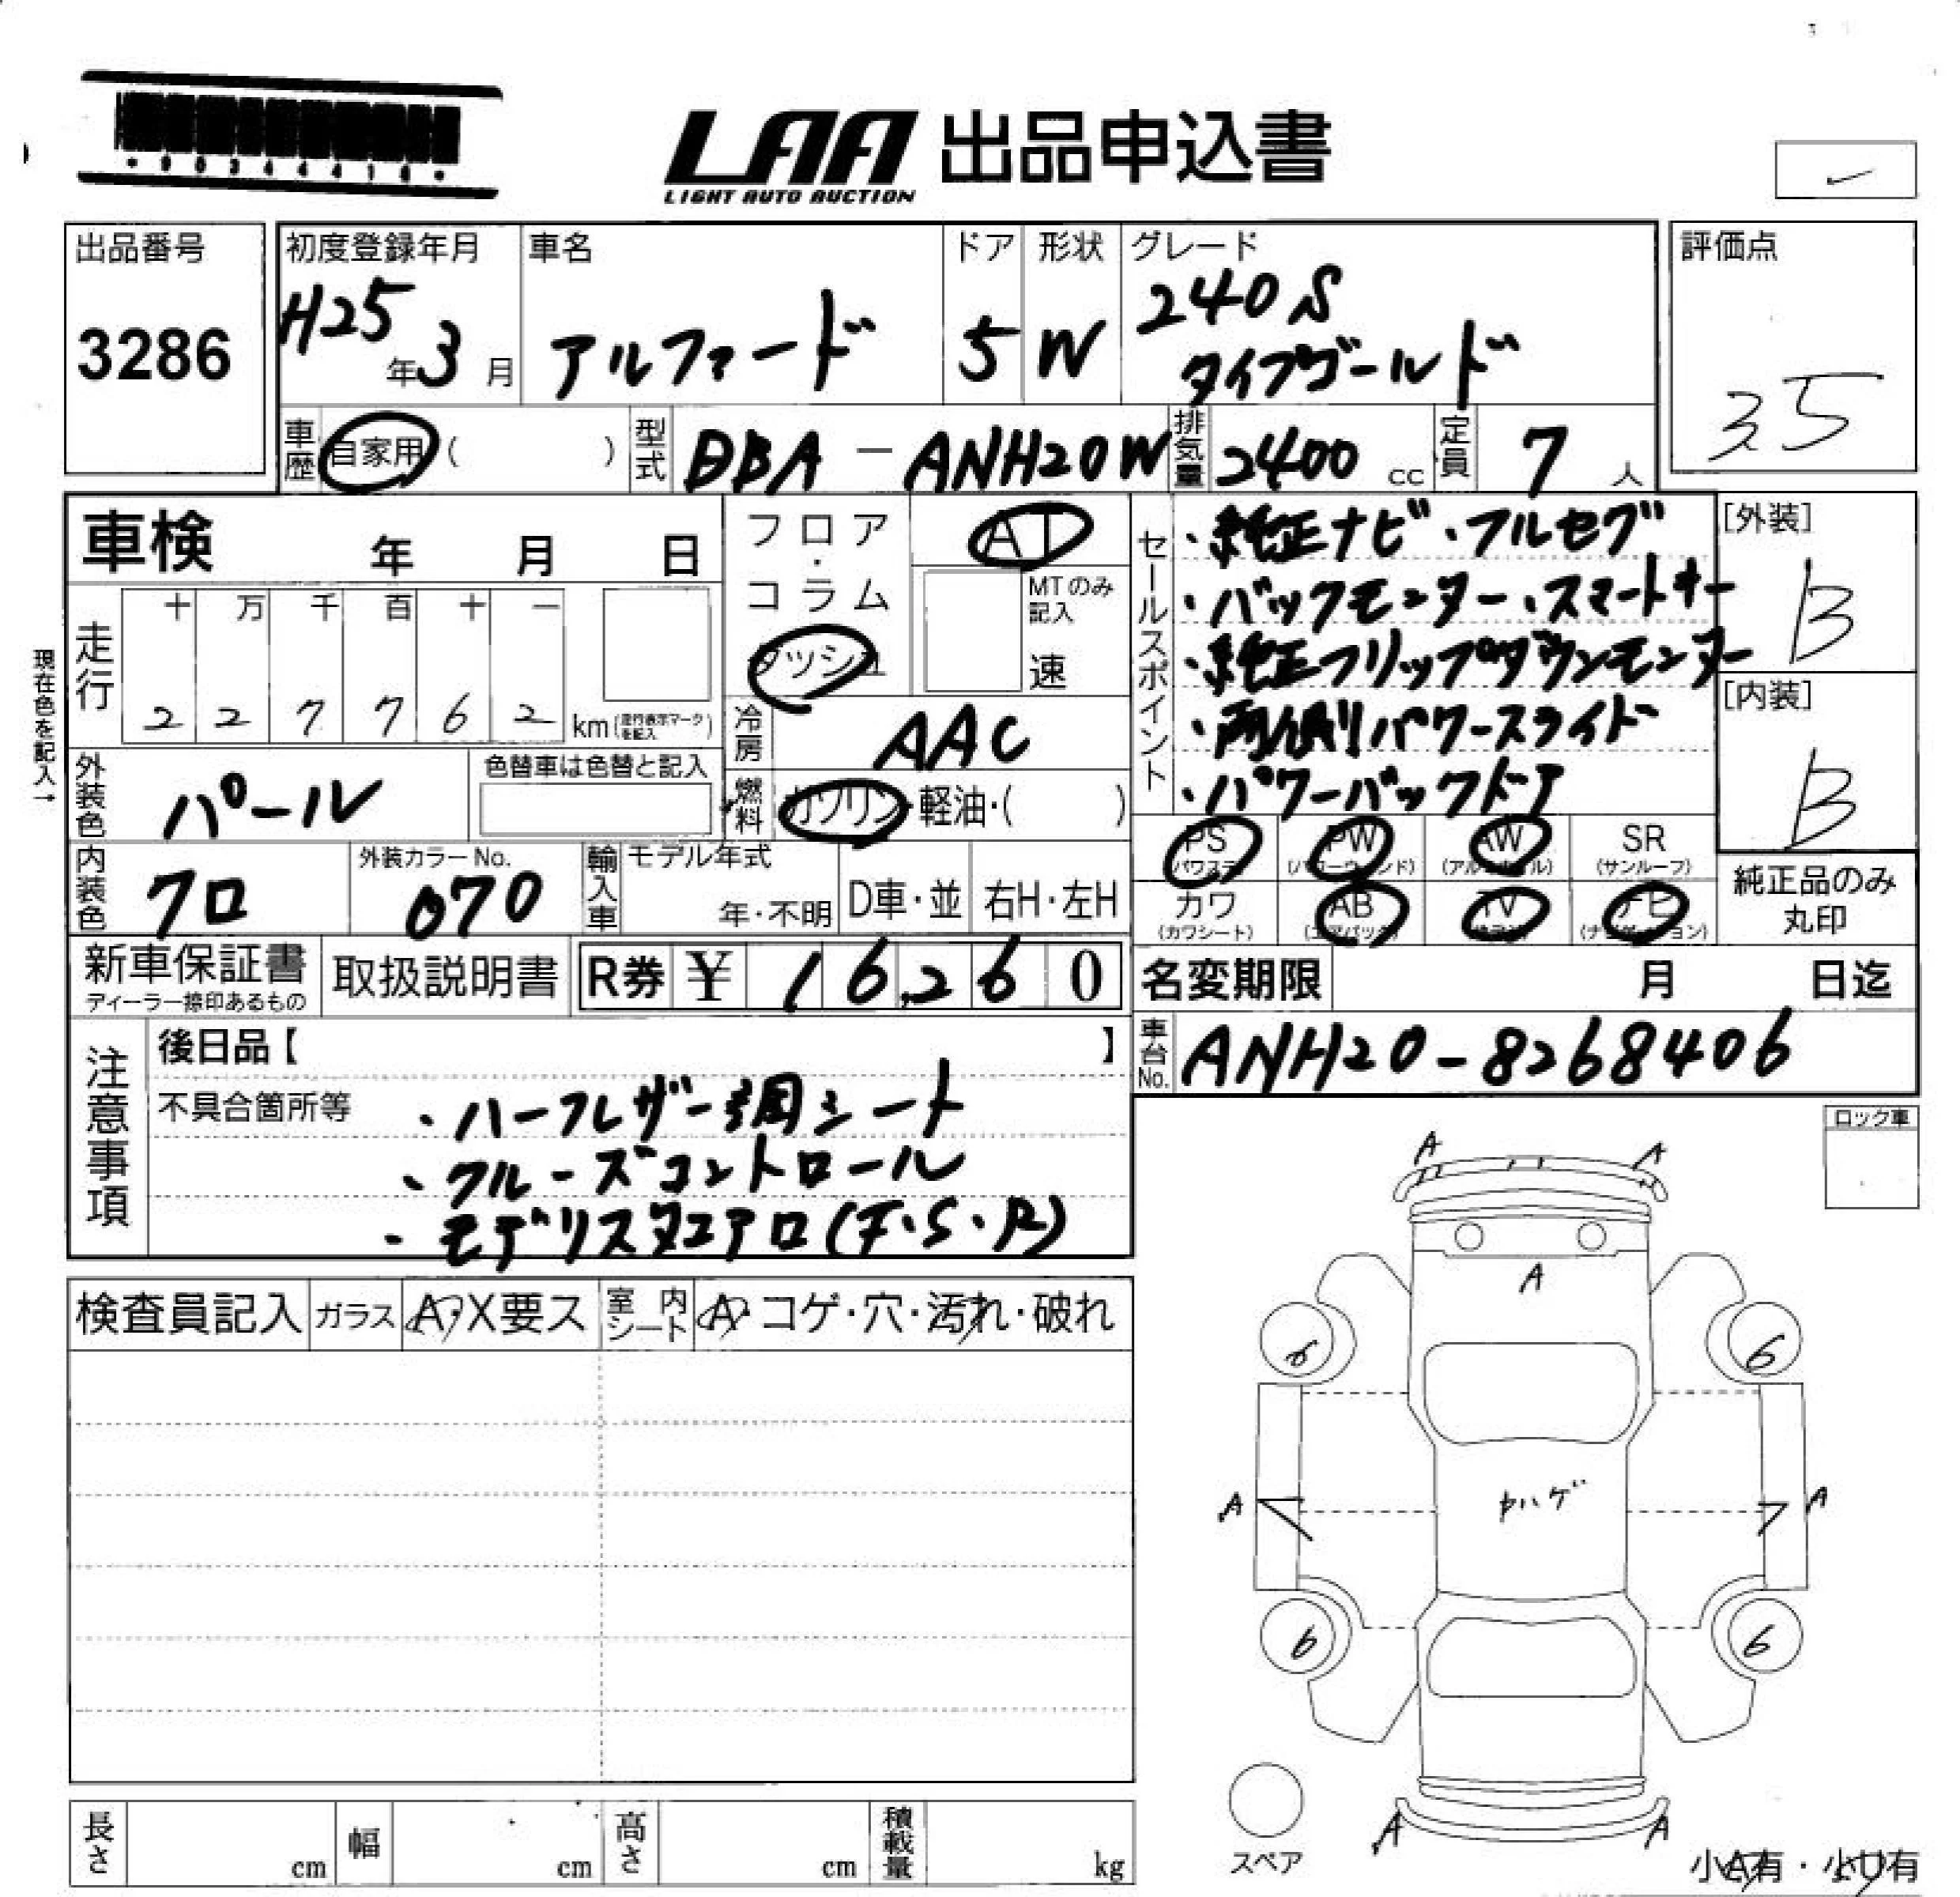 LAA 出品申込書
LIGHT AUTO AUCTION
出品番号
3286
初度登録年月
H25年3月
車名
アルファード
ドア
5
形状
W
グレード
240S
タイプゴールド
評価点
3.5
車歴 自家用 ( )
型式 DBA-ANH20W
排気量 2400 cc
定員 7 人
車検 年 月 日
フロア・コラム
ダッシュ
AT
MTのみ記入
速
現在色を記入→
走行
十 万 千 百 十 一
2 2 7 7 6 2 km (走行表示マークを記入)
冷房 AAC
外装色 パール
色替車は色替と記入
燃料 ガソリン・軽油・( )
内装色 クロ
外装カラーNo.
070
輸入車
モデル年式
年・不明
D車・並
右H・左H
新車保証書
ディーラー捺印あるもの
取扱説明書
R券 ¥ 16,260
セールスポイント
・純正ナビ・フルセグ
・バックモニター・スマートキー
・純正フリップダウンモニター
・両側パワースライド
・パワーバックドア
[外装]
B
[内装]
B
PS
(パワステ)
PW
(パワーウィンド)
AW
(アルミホイール)
SR
(サンルーフ)
カワ
(カワシート)
AB
(エアバッグ)
TV
ナビ
(ナビゲーション)
純正品のみ
丸印
名変期限 月 日迄
車台No. ANH20-8268406
注意事項
後日品【 】
不具合箇所等
・ハーフレザー調シート
・クルーズコントロール
・モデリスタエアロ(F・S・R)
ロック車
検査員記入
ガラス
A・X要ス
室内シート
A・コゲ・穴・汚れ・破れ
A
A
A
6
6
A
カハゲ
A
6
6
A
A
スペア
小A有・小U有
長さ cm
幅 cm
高さ cm
積載量 kg